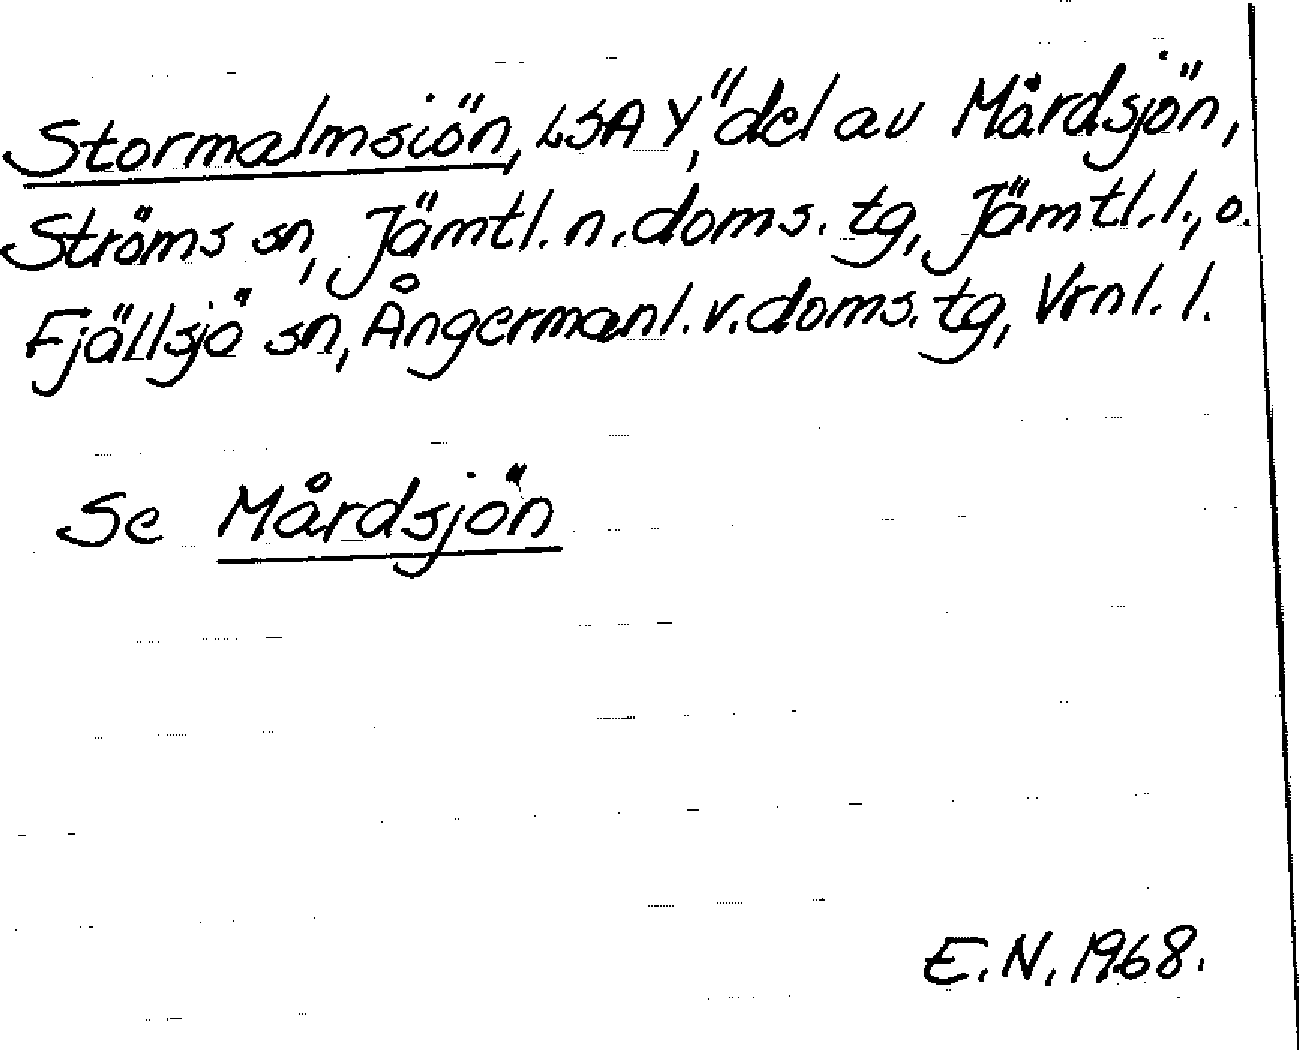 Stormalmsiön, LSA Y, "del av Mårdsjön,
Ströms sn, Jämtl. n. doms. tg, Jämtl. l., o.
Fjällsjö sn, Ångermanl. v. doms. tg, Vrnl. l.
Se Mårdsjön
E. N. 1968.